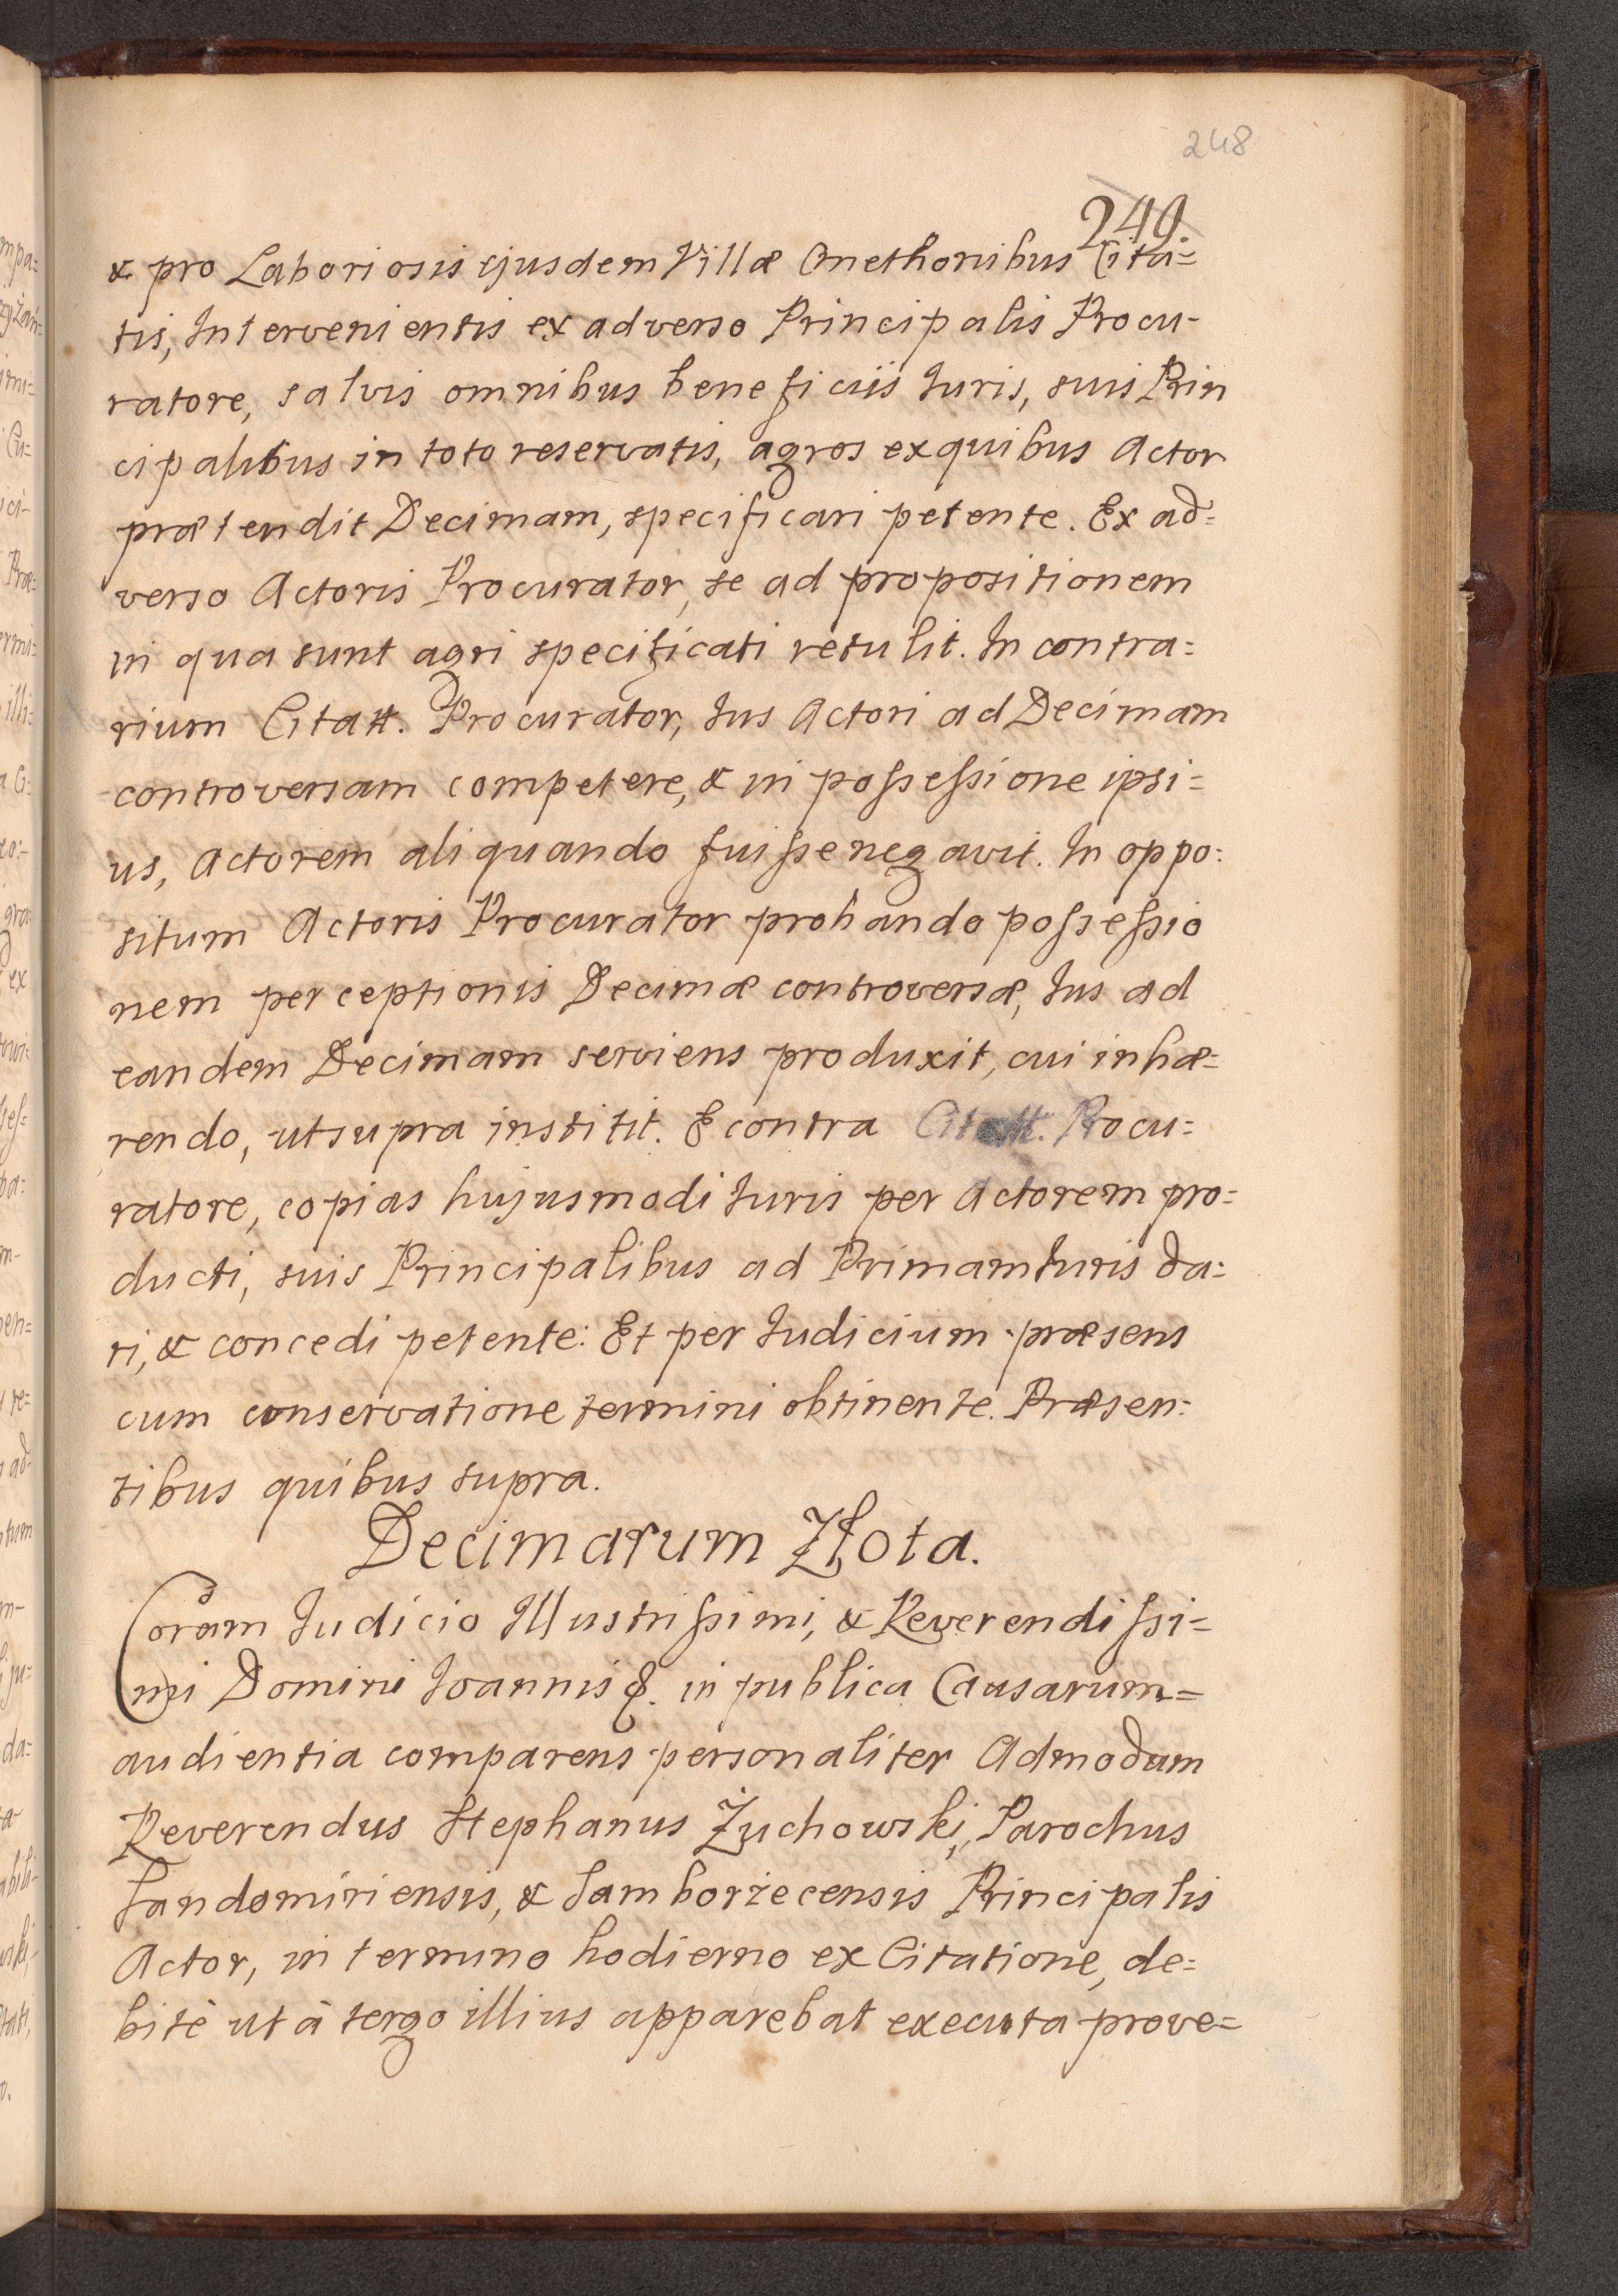 248
249.
& pro Laboriosis ejusdem Villæ Cmethonibus Cita=
tis, Intervenientis ex adverso Principalis Procu-
ratore, salvis omnibus beneficiis Juris, suis Prin
cipalibus in toto reservatis, agros ex quibus Actor
prætendit Decimam, specificari petente. Ex ad=
verso Actoris Procurator, se ad propositionem
in qua sunt agri specificati retulit. In contra=
rium Citatt. Procurator, Jus Actori ad Decimam
controversam competere, & in possessione ipsi=
us, Actorem aliquando fuisse negavit. In oppo=
situm Actoris Procurator probando possessio
nem perceptionis Decimæ controversæ, Jus ad
eandem Decimam serviens produxit, cui inhæ=
rendo, ut supra institit. E contra Citatt. Procu=
ratore, copias hujusmodi Juris per Actorem pro=
ducti, suis Principalibus ad Primam Juris da=
ri, & concedi petente: Et per Judicium præsens
cum conservatione termini obtinente. Præsen=
tibus quibus supra.
Decimarum Złota.
Coram Judicio Illustrissimi, & Reverendissi=
mi Domini Joannis &. in publica Causarum=
audientia comparens personaliter Admodum
Reverendus Stephanus Żuchowski, Parochus
Sandomiriensis, & Samborzecensis Principalis
Actor, in termino hodierno ex Citatione, de=
bitè ut à tergo illius apparebat executa prove=